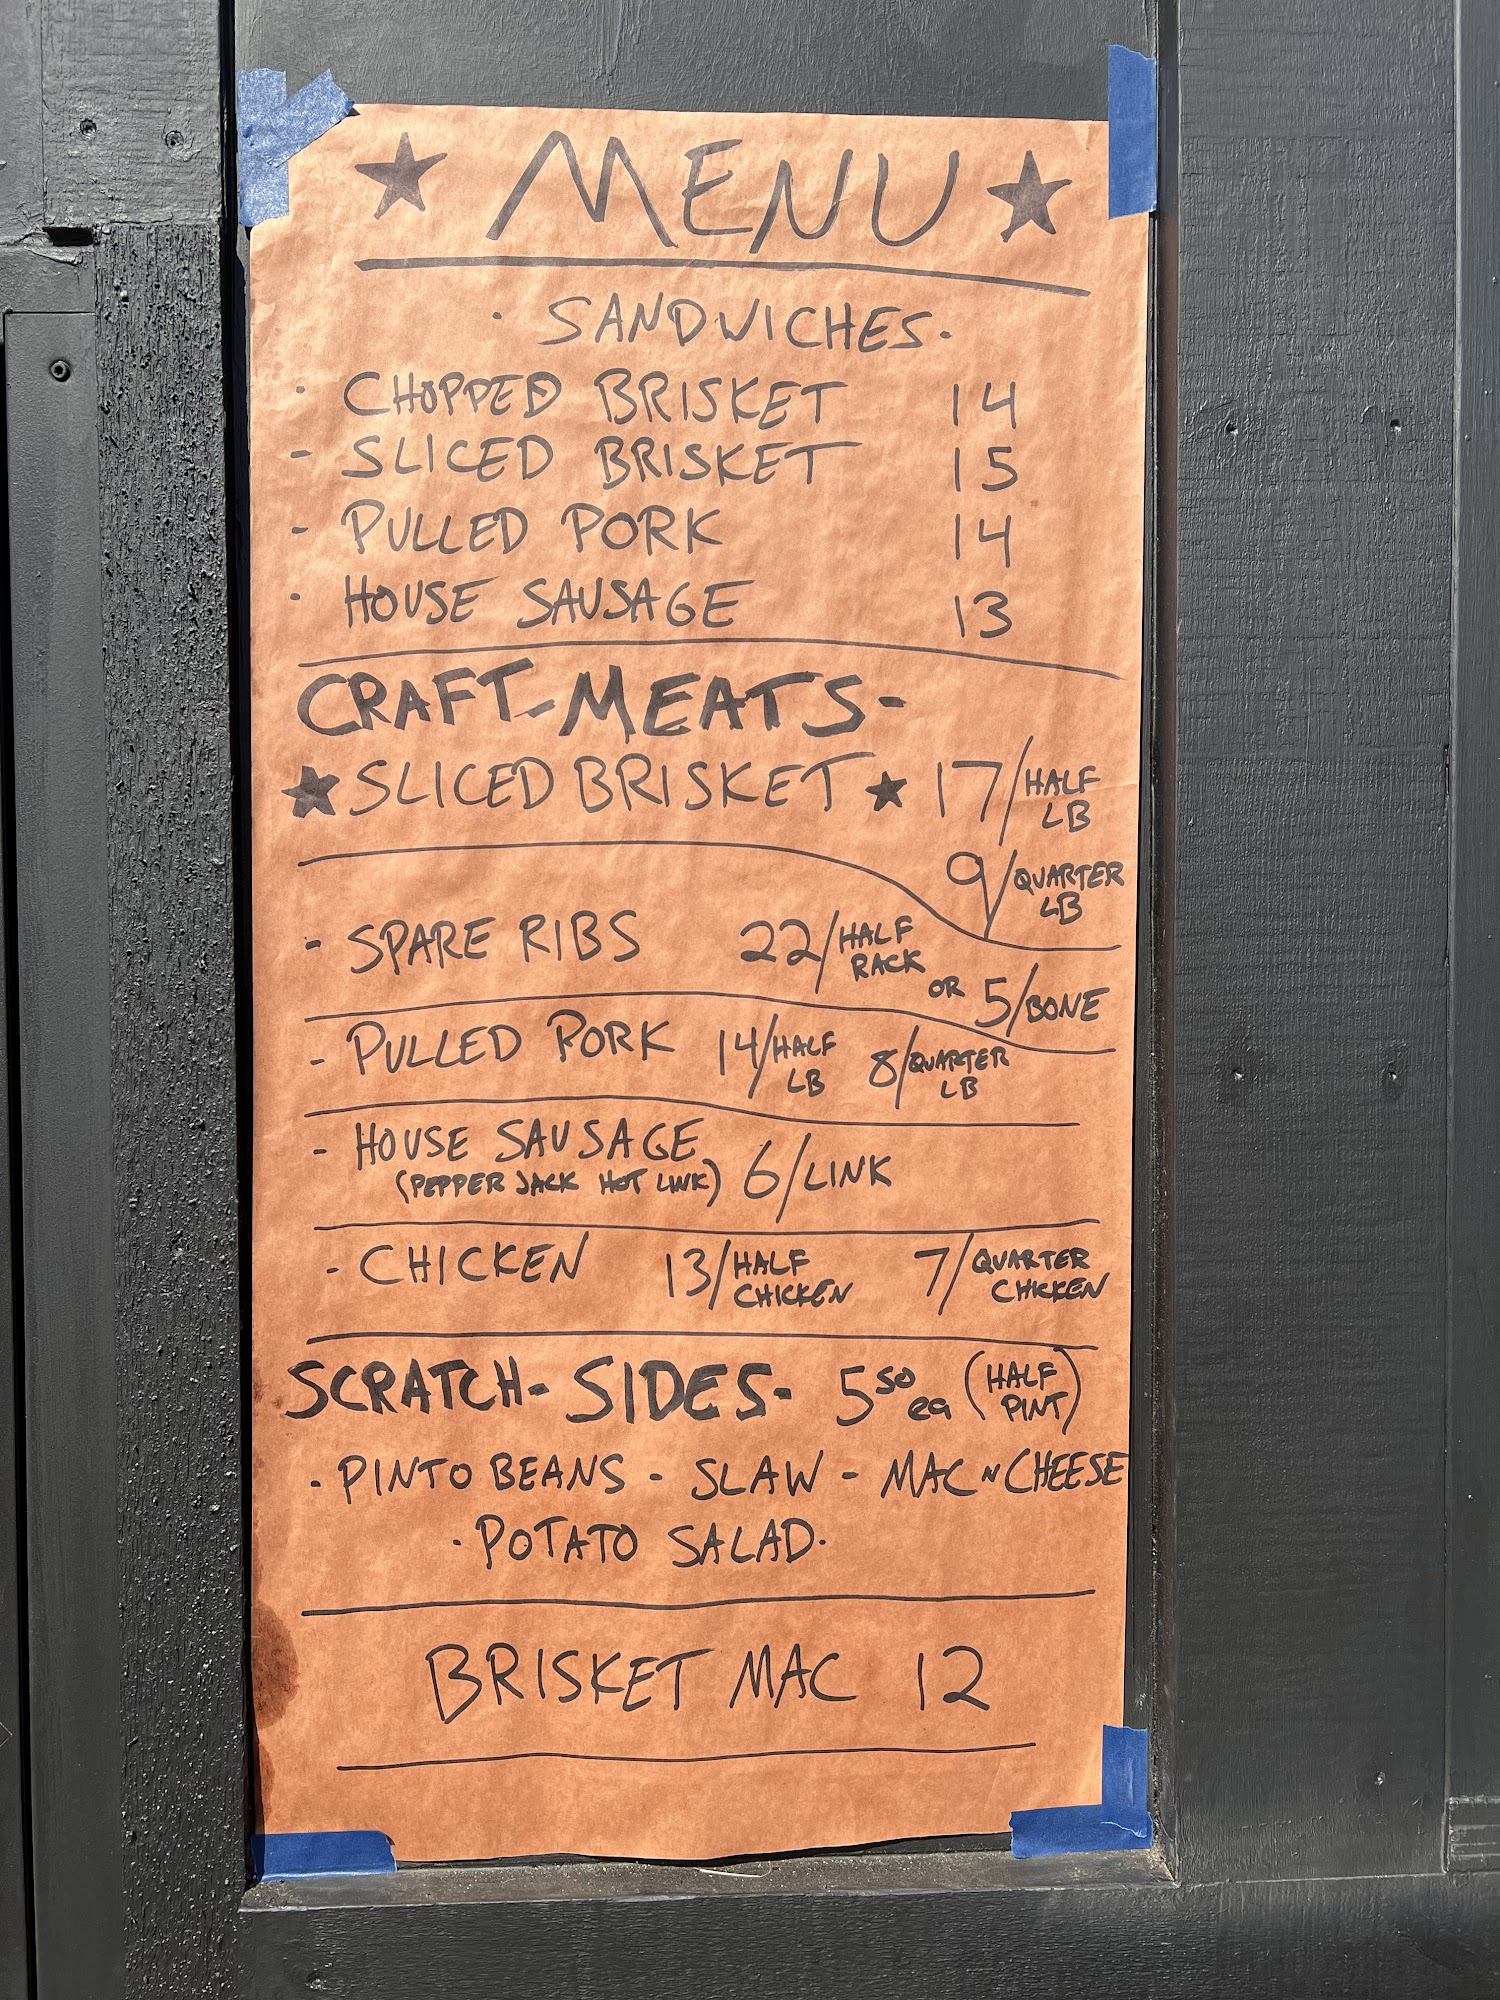 ★ MENU ★
· SANDWICHES ·
· CHOPPED BRISKET 14
- SLICED BRISKET 15
- PULLED PORK 14
· HOUSE SAUSAGE 13
CRAFT-MEATS-
★ SLICED BRISKET ★ 17/HALF LB
9/QUARTER LB
- SPARE RIBS 22/HALF RACK OR 5/BONE
- PULLED PORK 14/HALF LB 8/QUARTER LB
- HOUSE SAUSAGE 6/LINK
(PEPPER JACK HOT LINK)
- CHICKEN 13/HALF CHICKEN 7/QUARTER CHICKEN
SCRATCH-SIDES- 5 50 ea (HALF PINT)
· PINTO BEANS - SLAW - MAC N CHEESE
· POTATO SALAD ·
BRISKET MAC 12